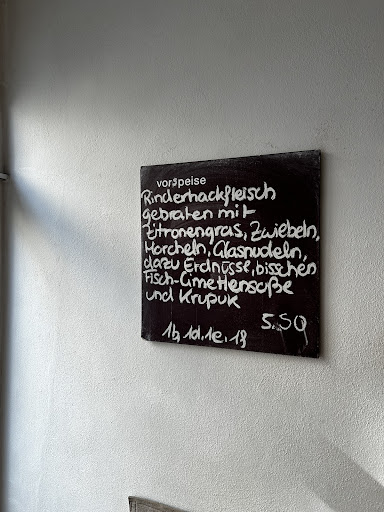 vorspeise
Rinderhackfleisch
gebraten mit
Zitronengras, Zwiebeln,
Morcheln, Glasnudeln,
dazu Erdnüsse, bisschen
Fisch-Limettensoße
und Krupuk
5.50
1b, 1d, 1e, 1g